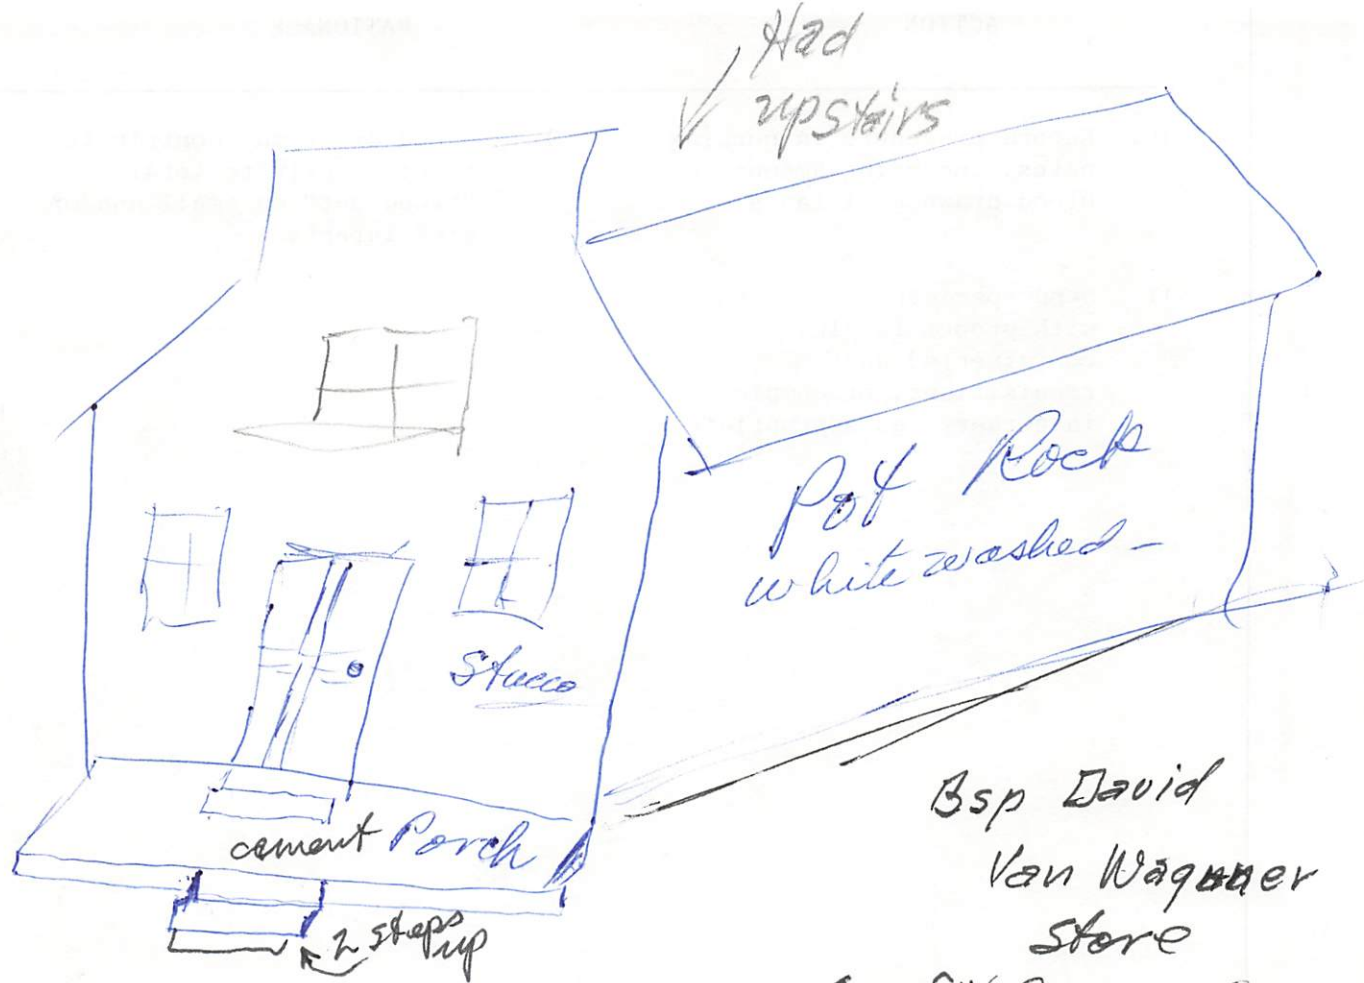 Had
upstairs
Pot Rock
white washed -
Stucco
cement Porch
2 steps
up
Bsp David
Van Wagoner
Store